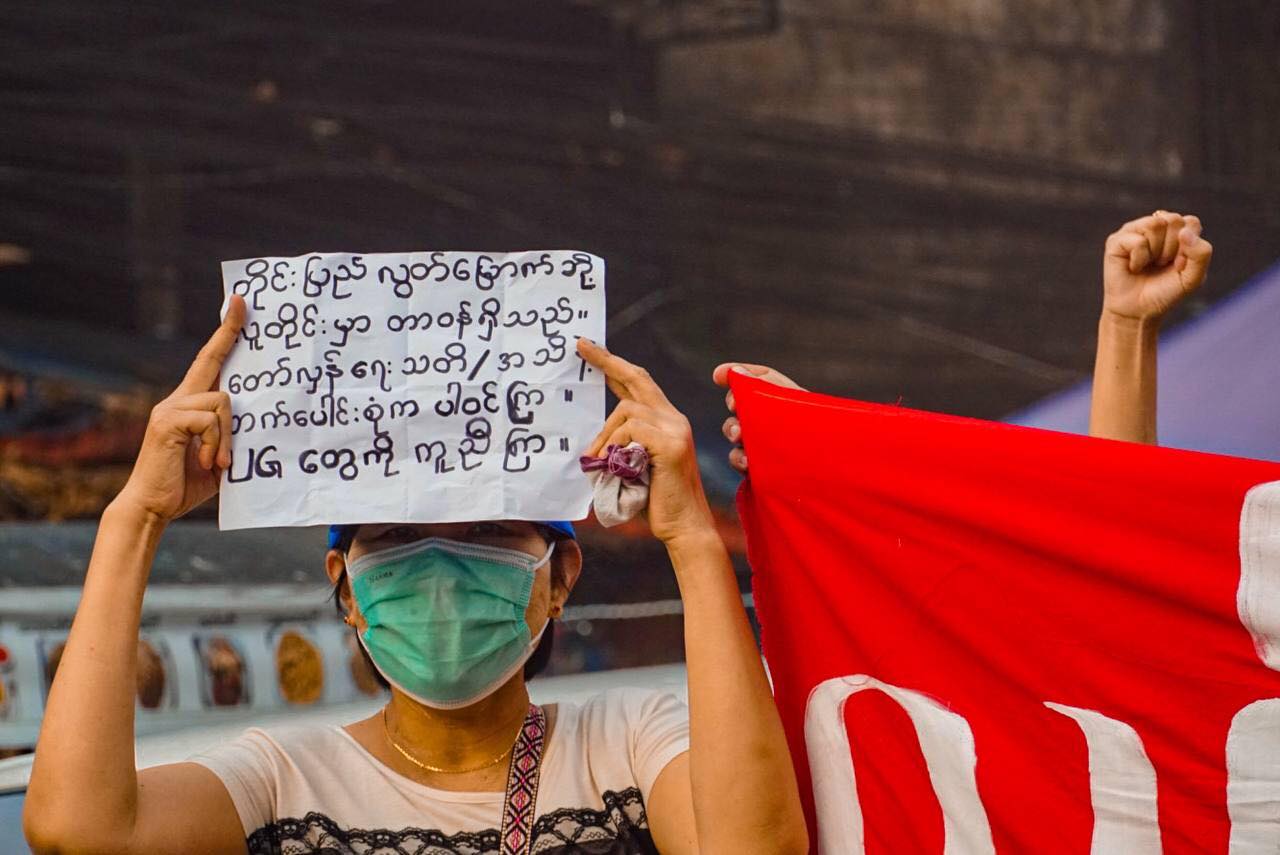 တိုင်းပြည် လွတ်မြောက်ဘို့
လူတိုင်းမှာ တာဝန်ရှိသည်။
တော်လှန်ရေး သတိ/အသိ
ဘက်ပေါင်းစုံက ပါဝင်ကြာ။
UG တွေကို ကူညီကြာ။